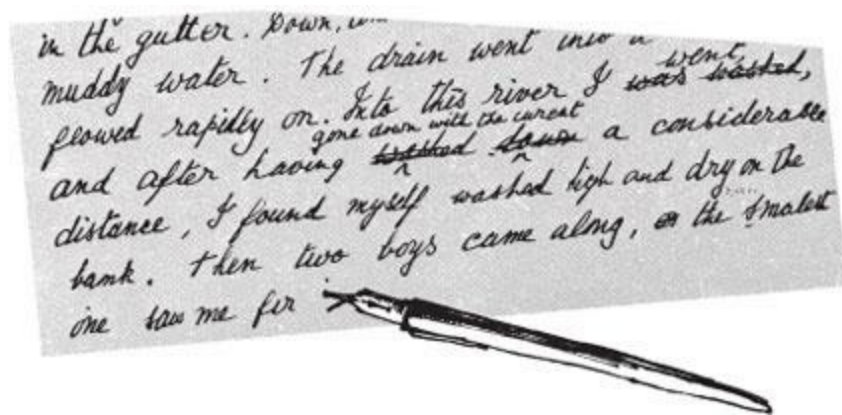 in the gutter. Down,
muddy water. The drain went into a
went,
flowed rapidly on. Into this river I was washed,
gone down with the curent
and after having washed down a considerable
distance, I found myself washed high and dry on the
bank. Then two boys came along, the smalest
one saw me fir